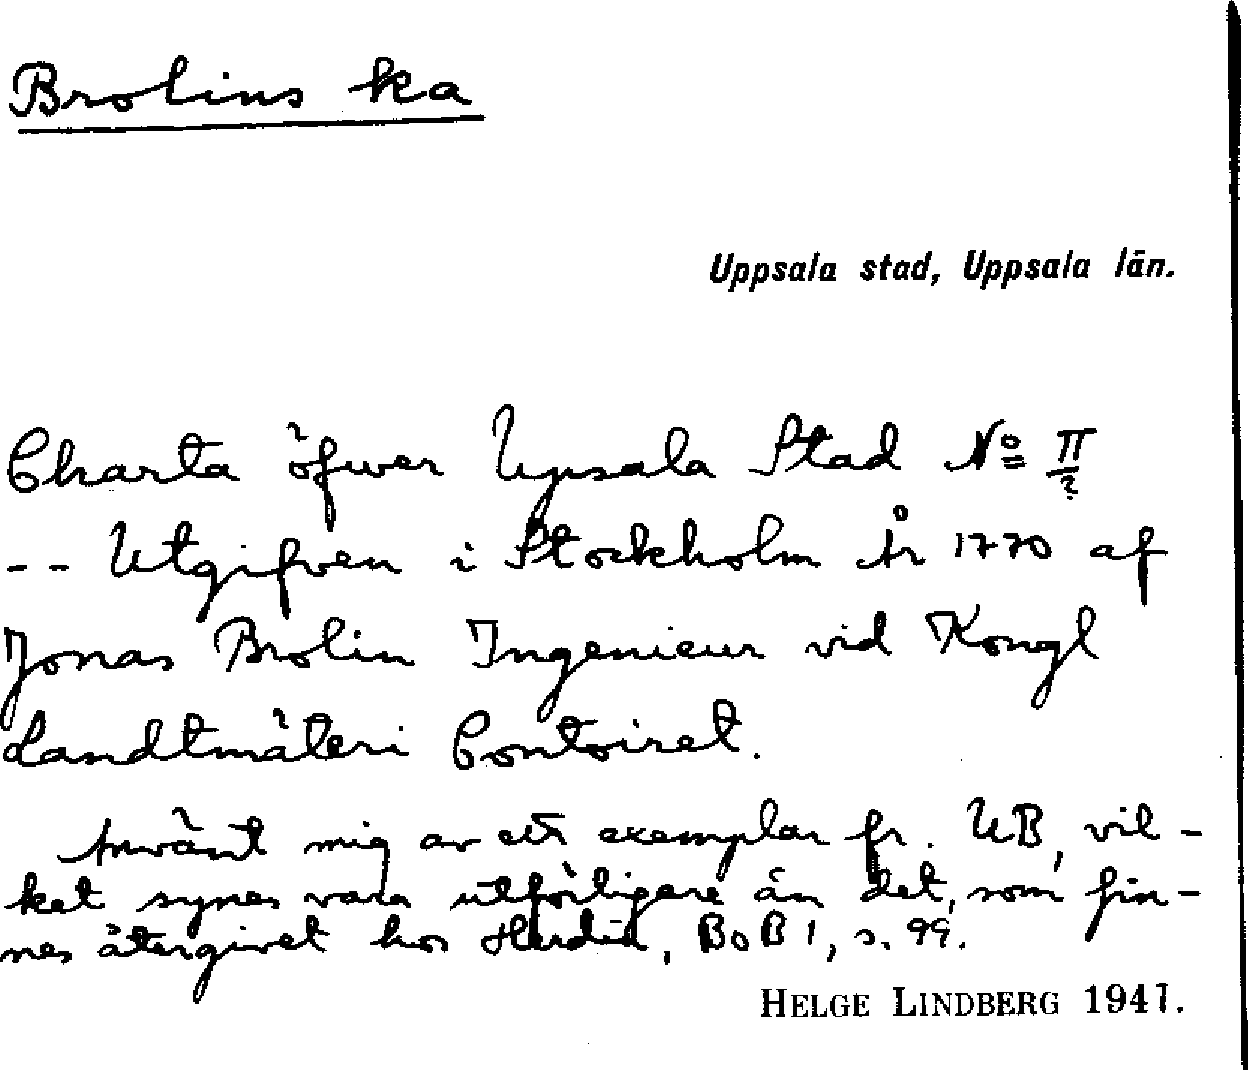 Brolins ka
Uppsala stad, Uppsala län.
Charta öfwer Upsala Stad No II
?
-- Utgifven i Stockholm År 1770 af
Jonas Brolin Ingenieur vid Kongl
Landtmäteri Contoiret.
Använt mig av ett exemplar fr. UB, vil-
ket synes vara utförligare än det, som fin-
nes återgivet hos Herdin, BoB 1, s. 99.
HELGE LINDBERG 1941.